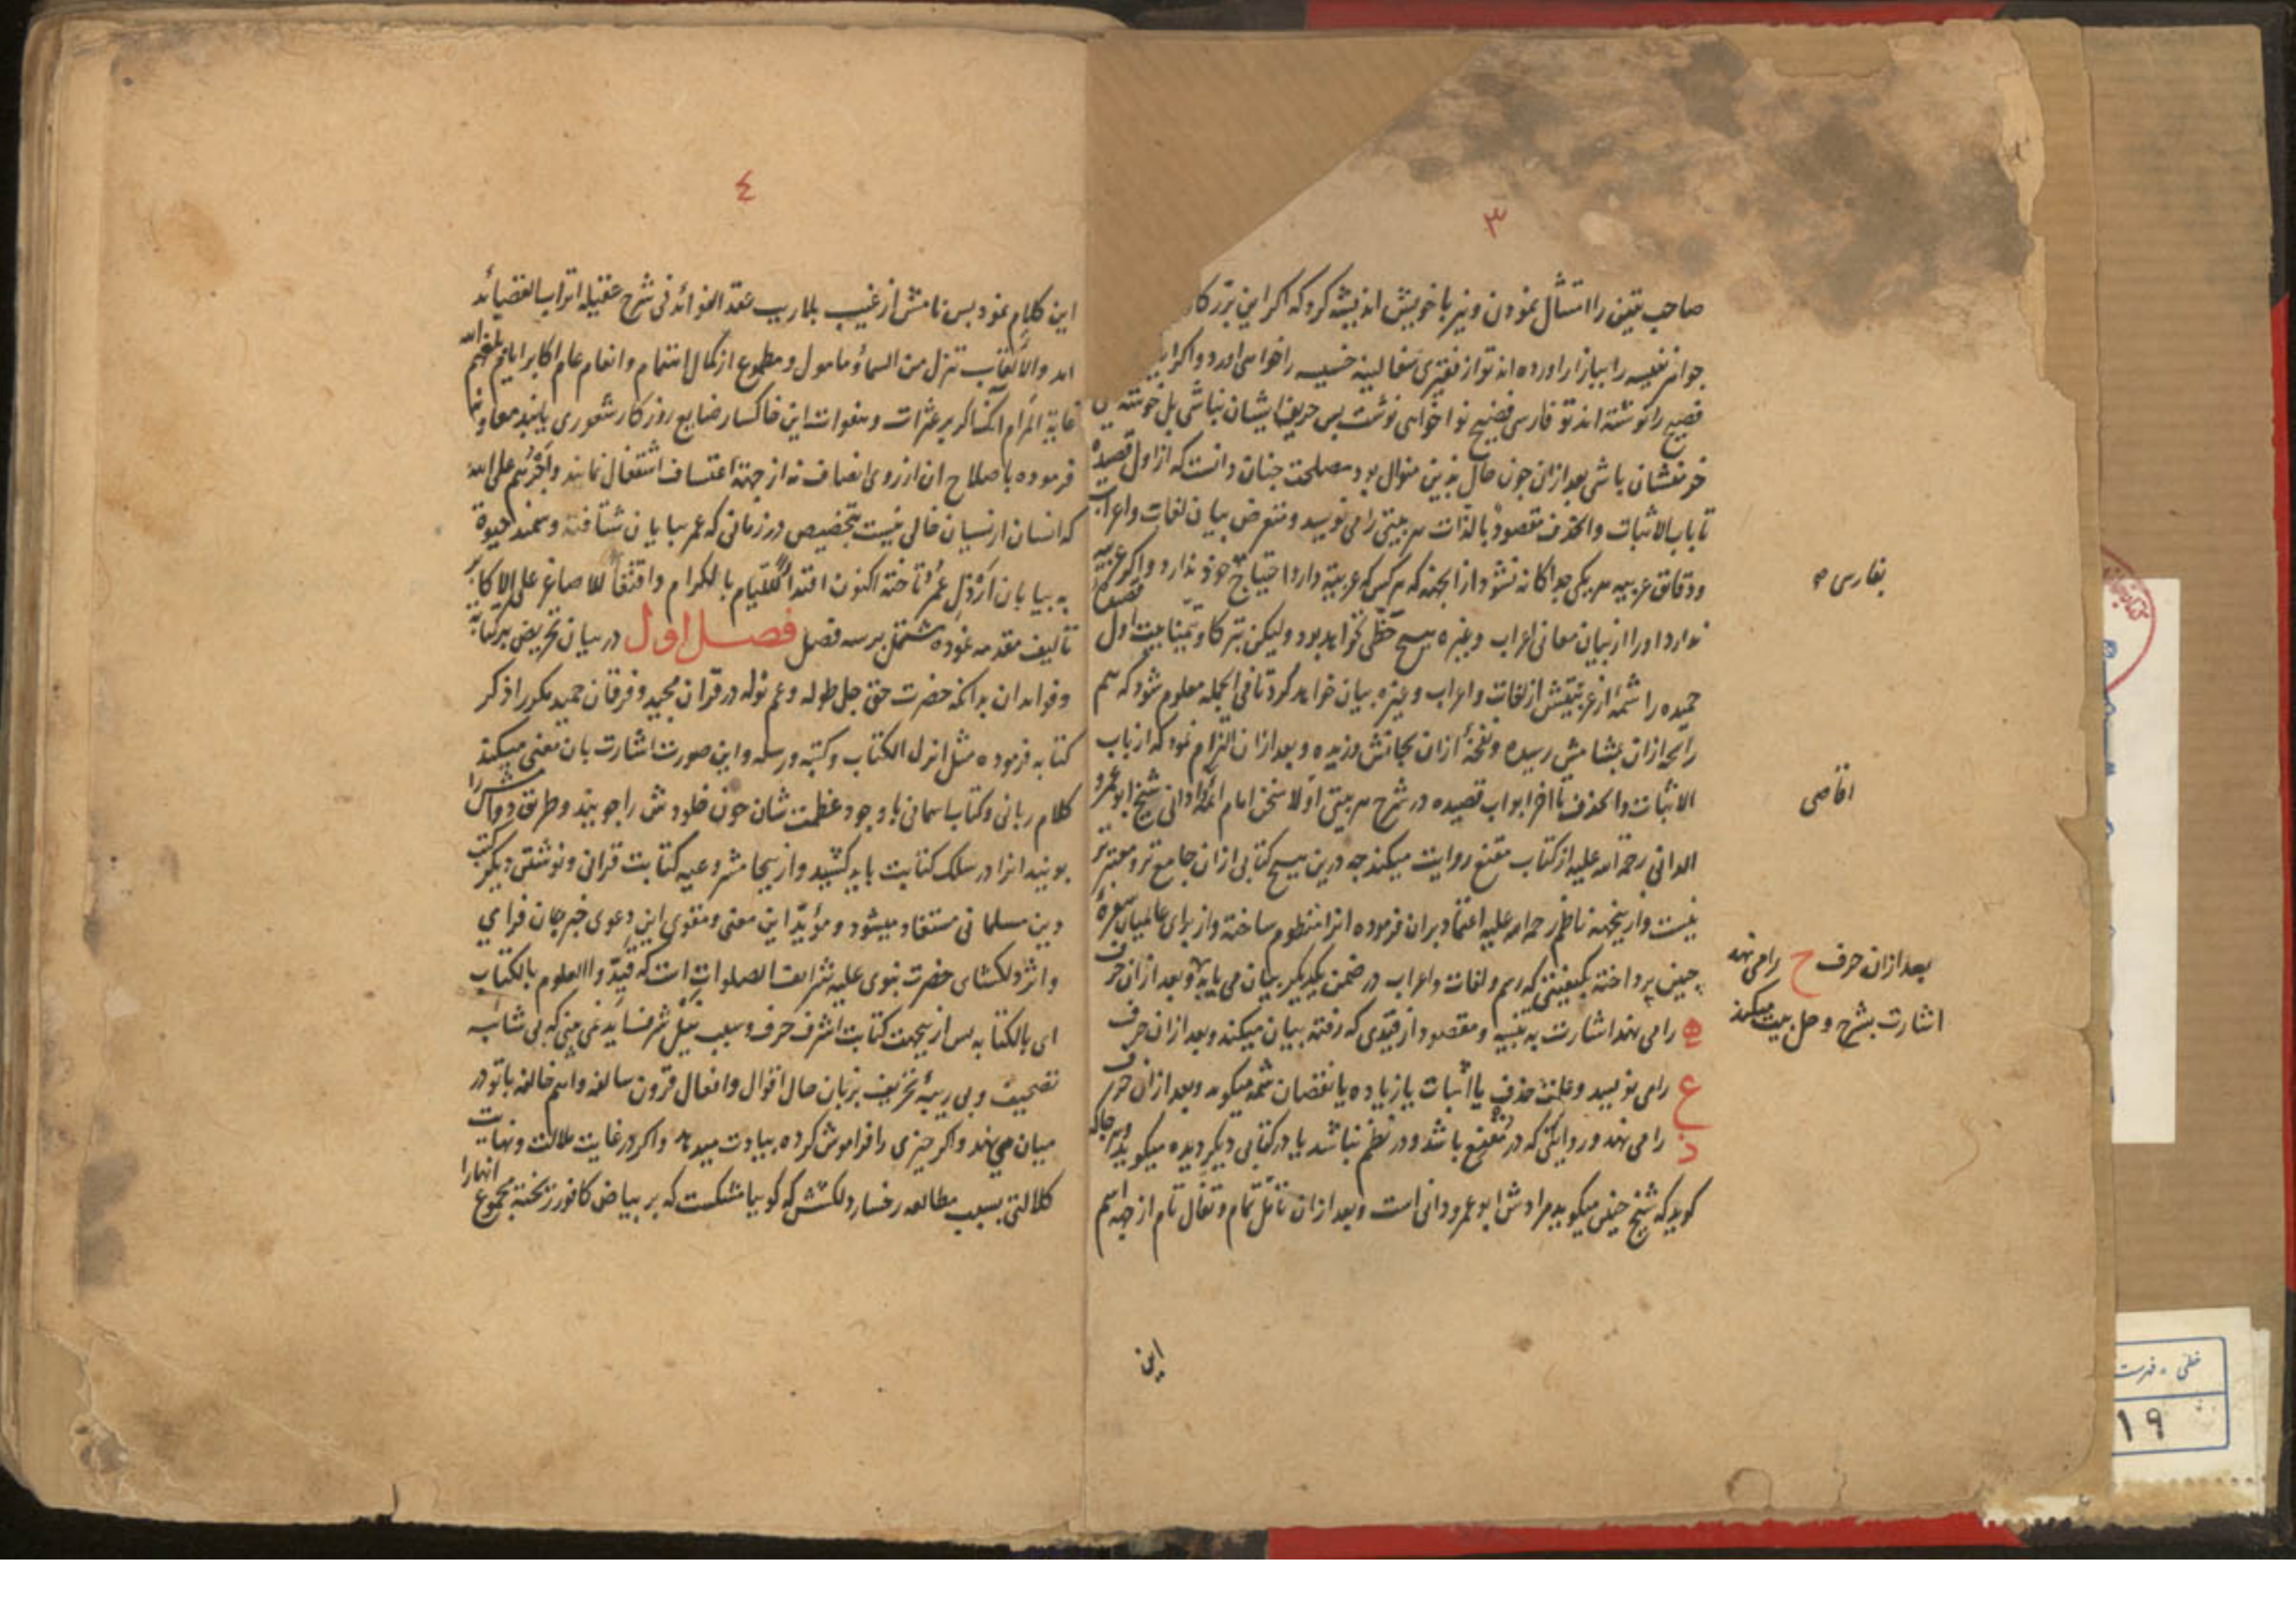 ۳
صاحب یقین را امتثال نمودن و نیز با خویش اندیشه کرد که اکر این بزرکا
جواهر نفیسه را ببازار اورده اند تو از فقیری سفالینه خسیسه را خواهی اورد و اکر ا
فصیح را نوشته اند تو فارسی فضیح نواخواهی نوشت پس حریف ایشان نباشی بل خوشه
خرمنشان باشی بعد ازان چون حال بدین منوال بود مصلحت چنان دانست که از اول قصیده
تا باب الاثبات والحذف مقصود بالذات هر بیتی را می نویسد و متعرض بیان لغات و اعراب
و دقائق عربیه هر یکی جداکانه نشود از انجهته که هر کس که عربیة دارد احتیاج خود ندارد و اکر عربیه
ندارد او را از بیان معانی اعراب و غیره هیچ حظی نخواهد بود ولیکن تبرکا و تیمنا بیت اول قصیدهٔ
حمیده را شمهٔ از عربیتش از لغات و اعراب و غیره بیان خواهد کرد تا فی الجمله معلوم شود که هم
رایحه ازان بمشامش رسیده و نفحهٔ ازان بجانش وزیده و بعد ازان التزام نمود که از باب
الاثبات والحذف تا اخر ابواب قصیده در شرح هر بیتی اولا سخن امام ائمهٔ ادانی شیخ ابو عمرو
الدانی رحمة الله علیه از کتاب مقنع روایت میکند چه درین هیچ کتابی ازان جامع تر و معتبر تر
نیست و ازینجهته ناظم رحمه الله علیه اعتماد بران فرموده انرا منظوم ساخته و از برای عالمیان سفرهٔ
چنین پرداخته بکیفیتی که رسم و لغات و اعراب در ضمن یکدیکر بیان می یابد و بعد ازان حرف
ه را می نهد اشارت به تنبیه و مقصود از قیدی که رفته بیان میکند و بعد ازان حرف
ع را می نویسد و علت حذف یا اثبات یا زیاده یا نقصان ثمه میکوید و بعد ازان حرف
ذ را می نهد و روایتی که در مقنع باشد و در نظم نباشد یا در کتابی دیکر دیده میکوید و هر جا که
کوید که شیخ چنین میکوید مرادش ابو عمرو دانی است و بعد ازان تامل تمام و تفال تام از جهة اسم
این
بفارسی
اقاصی
بعد ازان حرف ح را می نهد
اشارت بشرح و حل بیت میکند
٤
این کلام نمود پس نامش از غیب بلا ریب عقد الفوائد فی شرح عقیله اتراب القصائد
امد والالقاب تنزل من السماء و مامول و مطموع از کمال اهتمام و انعام عام اکابر ایام بلغهم الله
غایة المرام آنکه اکر بر عثرات و هفوات این خاکسار ضایع روزکار شعوری یابند معاونتها
فرموده باصلاح ان از روی انصاف نه از جهة اعتساف اشتغال نمایند و اجرهم علی الله
که انسان از نسیان خالی نیست بتخصیص در زمانی که عمر بپایان شتافته و سمند حیوة
به بیابان ارذل عمر تاخته اکنون اقتداء للئیام بالکرام و اقتفاء للاصاغر علی الاکابر
تالیف مقدمه نموده مشتمل بر سه فصل فصل اول در بیان تحریض بر کتابة
و فواید ان بدانکه حضرت حق جل طوله و عم نوله در قران مجید و فرقان حمید مکرر ذکر
کتابه فرموده مثل انزل الکتاب و کتبه و رسله و این صورت اشارت بان معنی میکند
کلام ربانی و کتاب اسمانی با وجود عظمت شان چون خلودش را جویند و طریق دوامش را
پویند انرا در سلک کتابت باید کشید و ازینجا مشروعیه کتابت قرانی و نوشتن دیکر کتب
دین مسلمانی مستفاد میشود و مؤید این معنی و مقوی این دعوی خبر جان فزای
و اثر دلکشای حضرت نبوی علیه شرائف الصلوات است که قیدوا العلوم بالکتاب
ای بالکتابه پس ازینجهت کتابت اشرف حرف و سبب نیل شرف اید نمی بینی که بی شائبه
تصحیف و بی ریبهٔ تحریف بزبان حال اقوال و افعال قرون سالفه و امم خالفه با تو در
میان می نهد و اکر چیزی را فراموش کرده بیادت میدهد و اکر در غایت ملالت و نهایت
کلالتی بسبب مطالعه رخسار دلکشش که کویا مشکست که بر بیاض کافور ریخته مجموع انها را
خطی - فهرست
۱۹